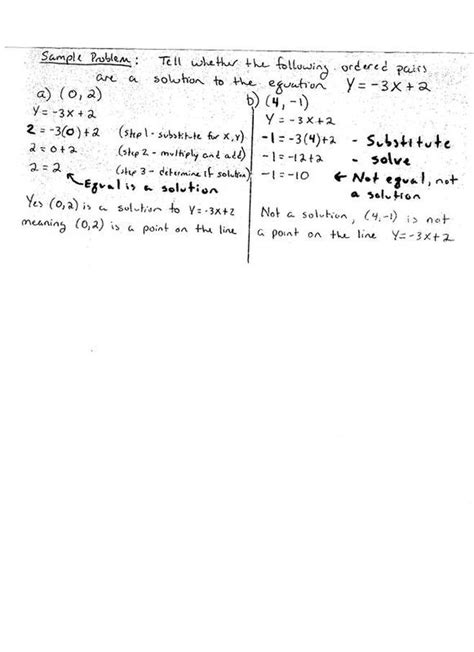 Sample Problem: Tell whether the following ordered pairs
are a solution to the equation Y = -3x + 2
a) (0, 2)
Y = -3x + 2
2 = -3(0) + 2 (step 1 - substitute for x, y)
2 = 0 + 2 (step 2 - multiply and add)
2 = 2 (step 3 - determine if solution)
Equal is a solution
Yes (0,2) is a solution to Y = -3x+2
meaning (0,2) is a point on the line
b) (4, -1)
Y = -3x + 2
-1 = -3(4) + 2 - Substitute
-1 = -12 + 2 - solve
-1 = -10 ← Not equal, not
a solution
Not a solution, (4,-1) is not
a point on the line Y = -3x + 2